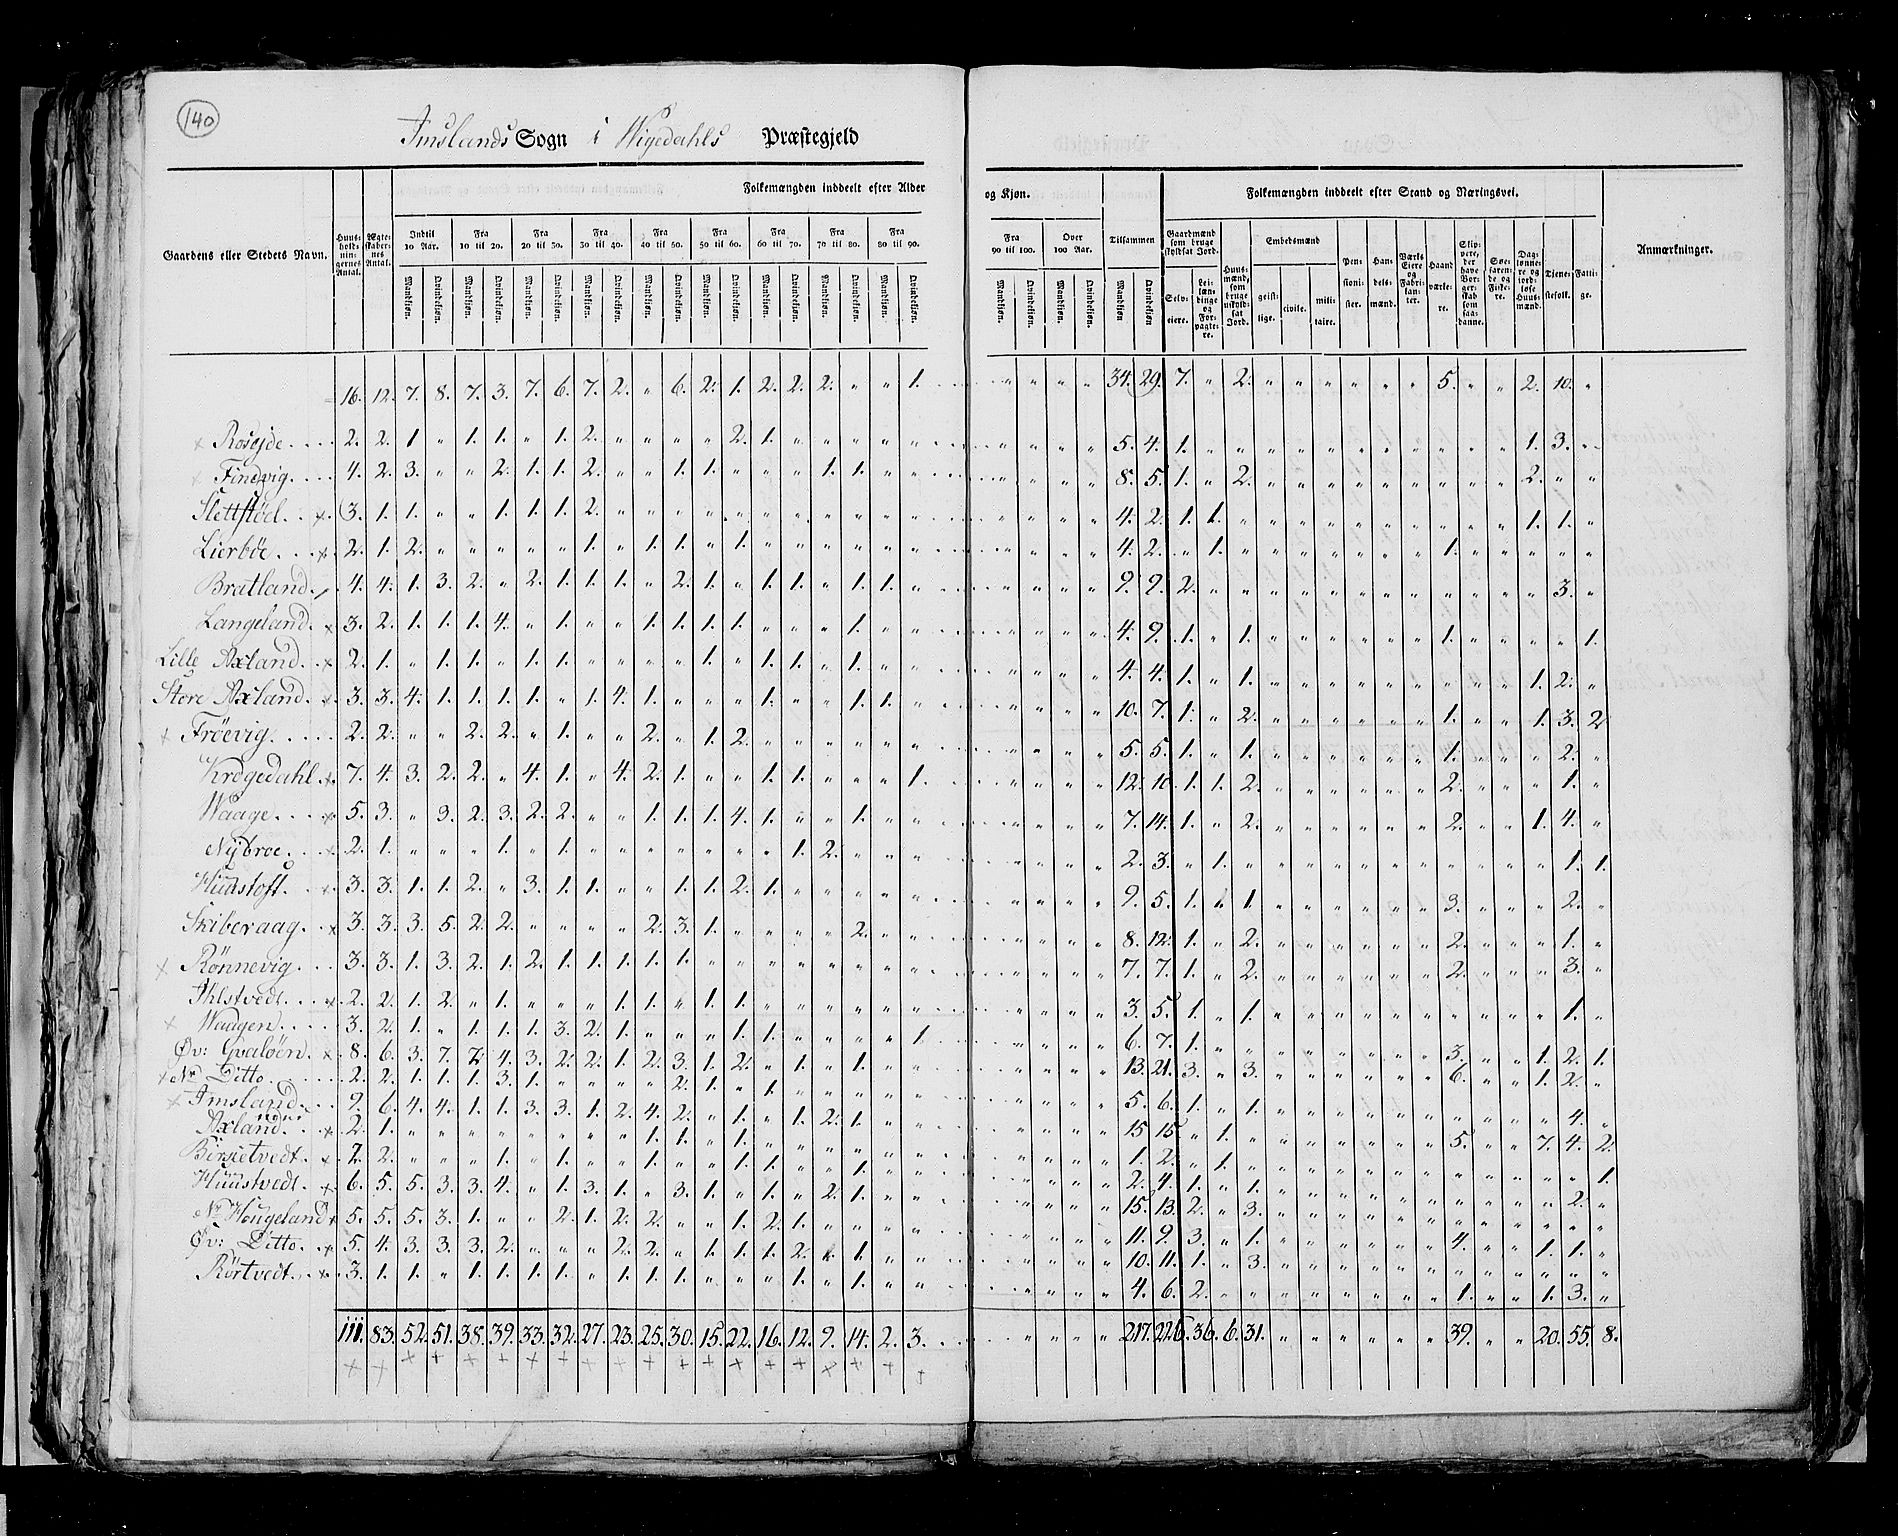 140
Imslands Sogn i Wigedahls Præstegjeld
Gaardens eller Stedets Navn. Huus-hold-nin-gernes Antal. Ægte-skaber-nes Antal. Folkemængden inddeelt efter Alder og Kjøn. Tilsammen Folkemængden inddeelt efter Stand og Næringsvei. Anmærkninger.
Indtil 10 Aar. Fra 10 til 20. Fra 20 til 30. Fra 30 til 40. Fra 40 til 50. Fra 50 til 60. Fra 60 til 70. Fra 70 til 80. Fra 80 til 90. Fra 90 til 100. Over 100 Aar.
Mandkjøn. Qvindekjøn.
Gaardmænd som bruge skyldsat Jord. Selv-eiere. Lei-læn-dinge og For-pagte-re. Huus-mænd, som bruge uskyld-sat Jord. Embedsmænd geist-lige. civile. mili-taire. Pen-sioni-ster. Han-dels-mænd. Værks Eiere og Fabri-kan-ter. Haand værke-re. Søe-faren-de og Fiske-re. Dag-lønne-re og jord-løse Huus-mænd. Tjene-stefolk. Fatti-ge.
16. 12. 7. 8. 7. 3. 7. 6. 7. 2. " 6. 2. 1. 2. 2. 2. " " 1. " " " " 34. 29. 7. " 2. " " " " " " 5. " " 2. 10. "
Rosejde. 2. 2. 1 " 1. 1. " 1. 2. " " " " 2. 1. " " " " " " " " " 5. 4. 1. " " " " " " " " " " " 1. 3. "
Findvig. 4. 2. 3. " " 2. 1. 1. 2. " " 1. 1. " " " 1. 1. " " " " " " 8. 5. 1. " 2. " " " " " " " " " 2. " "
Slettstøel. 3. 1. 1. " " 1. 1. 1. 2. " " " " " " " " " " " " " " " 4. 2. 1. 1. " " " " " " " " " " 1. 1. "
Lierbøe. 2. 1. 2. " " " " " 1. " 1. 1. " 1. " " " " " " " " " " 4. 2. " 1. " " " " " " " 1. " " " " "
Bratland. 4. 4. 1. 3. 2. " 2. 1. 1. 1. " 2. 1. " 1. 1. " 1. 1. " " " " " 9. 9. 2. " " " " " " " " " " " " 3. "
Langeland. 3. 2. 1. 1. 1. 4. " 1. " " 1. 1. 1. 1. " " " 1. " " " " " " 4. 9. 1. " 1. " " " " " " 1. " " " " 1.
Lille Axland. 2. 1. " 1. 1. " 1. 1. " " " " 1. " 1. 1. " 1. " " " " " " 4. 4. 1. " 1. " " " " " " " " " 1. 2. "
Store Axland. 3. 3. 4. 1. 1. 1. 1. " 1. 4. 1. " " " 1. " " 1. 1. " " " " " 10. 7. 1. " 2. " " " " " " 1. " " 1. 3. 2
Frøevig. 2. 2. " " 2. 2. " 1. " " 2. " 1. 2. " " " " " " " " " " 5. 5. 1. " 1. " " " " " " 1. " " " 2. "
Krogedahl. 7. 4. 3. 2. 2. " 4. 1. " 4. 2. 1. " " 1. 1. " " " 1. " " " " 12. 10. 1. 1. 2. " " " " " " 2. " " " 1. "
Waage. 5. 3. " 3. 2. 3. 2. 2. " " 1. 1. 1. 4. 1. " " 1. " " " " " " 7. 14. 1. " 2. " " " " " " 2. " " 1. 4. "
Nÿbroe. 2. 1. " " " 1. " 1. " " " " " " " 1. 2. " " " " " " " 2. 3. " 1. " " " " " " " " " " " 1. 1.
Huustoft. 3. 3. 1. 1. 2. " 3. 1. 1. " " 1. 1. 2. 1. " " " " " " " " " 9. 5. 1. 1. " " " " " " 3. " " " 2. "
Skiberaag. 3. 3. 3. 5. 2. 2. " " " " 2. 3. 1. " " " " 2. " " " " " " 8. 12. 1. " 2. " " " " " " 2. " " " 1. "
Rønnevig. 3. 3. 1. 3. 2. 1. 2. 1. 1. 1. 1. 1. " " " " " " " " " " " " 7. 7. 1. " 2. " " " " " " 2. " " " 3. "
Ihlstvedt. 2. 2. 1. 2. " 1. " " " 1. 1. " 1. 1. " " " " " " " " " " 3. 5. 1. " 1. " " " " " " " " " " 1. "
Waagen. 3. 2. 1. " 1. 1. 1. 3. 2. 1. " " " 1. 1. " " " " 1. " " " " 6. 7. 1. " " " " " " " " 3. " " 1. 2. 1.
Øv: Gvaløen. 8. 6. 3. 7. 7. 4. 3. 2. 2. 1. 2. 3. 1. 2. " 1. " 1. " " " " " " 13. 21. 3. " 3. " " " " " " 6. " " 1. 2. "
Nr Ditto. 2. 2. 1. 1. 1. 3. 1. " " " " 2. 1. " 1. " " " " " " " " " 5. 6. 1. " 1. " " " " " " " " " " 4. "
Imsland. 9. 6. 4. 4. 1. 1. 3. 3. 1. 2. 4. 2. " 1. " 1. 2. 1. " " " " " " 15 15. " 1. " " " " " " " 5. " " 7. 4. 2.
Axland. 2. 1. " " " " " " " " 1. 1. " 1. " " " " " " " " " " 1. 2. " 1. " " " " " " " " " " " " 1.
Børsietvedt. 2. 2. " " " 1. " 1. " " 1. " " 1. 1. " " 1. " " " " " " 2. 4. 1. " 1. " " " " " " " " " " 2. "
Huustvedt. 6. 5. 5. 3. 3. 4. " 1. 3. 1. " 3. 1. " 1. " 2. 1. " " " " " " 15. 13. 2. " 3. " " " " " " " " " " " "
Nr Hougeland. 5. 5. 5. 3. 1. " " 2. 1. 2. 2. " " 1. 2. 1. " " " " " " " " 11. 9. 3. " 1. " " " " " " 4. " " 1. 1. "
Øv: Ditto. 5. 4. 3. 3. 3. 2. " " " 2. 2. " 1. 1. 1. 2. " 1. " " " " " " 10. 11. 1. " 3. " " " " " " " " " " " "
Rørtvedt. 3. 1. 1. " 1. 1. 1. 1. " 1. 1. 1. " " " 1. " 1. " " " " " " 4. 6. 2. " " " " " " " " 1. " " 1. 3. "
111. 83. 52. 51. 38. 39. 33. 32. 27. 23. 25. 30. 15. 22. 16. 12. 9. 14. 2. 3. " " " " 217. 226. 36. 6. 31. " " " " " " 39. " " 20. 55. 8.